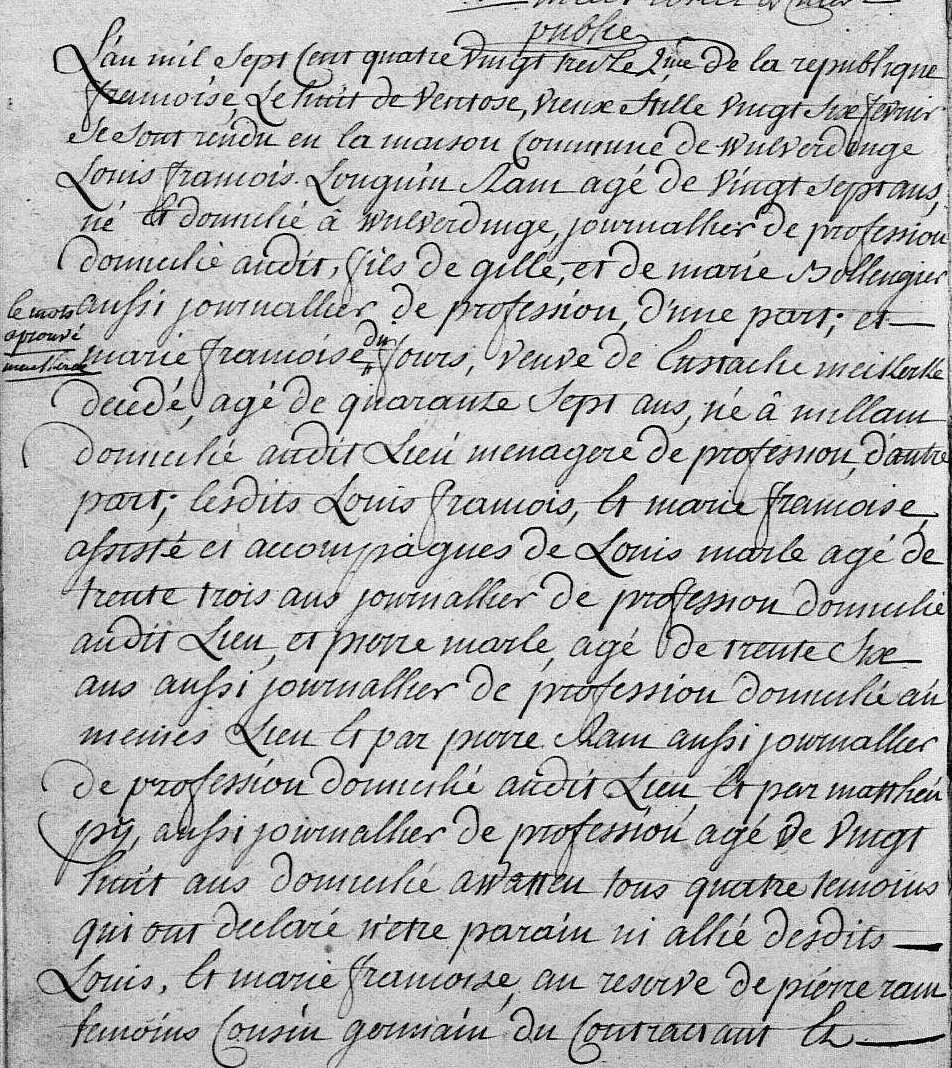 publie
L'an mil Sept Cent quatre Vingt treize 2ime De la republique
francoise, Le huit de Ventose, Vieux Stille Vingt Six fevrier
Se Sont rendu en la maison Commune de Wulverdinge
Louis francois Louguin Ram agé de Vingt Sept ans,
né Et domicilié â Wulverdinge, journallier de profession
domicilié audit, fils de gille, et de marie Bollengier
aussi journallier de profession, d'une part; et
le mots
aprouvé
marie francoise du fours, Veuve de Eustache meikerke
decedé, agé de quarante Sept ans, né â millam
domicilié audit Lieu menagere de profession, d'autre
part; lesdits Louis francois, Et marie francoise,
assisté et accompàgnes de Louis marle agé de
trente trois ans journallier de profession domicilié
audit Lieu, et pierre marle, agé de trente Six
ans aussi journallier de profession domicilié au
meines Lieu Et par pierre Ram aussi journallier
de profession domicilié audit Lieu, Et par matthieu
py, aussi journallier de profession agé De Vingt
huit ans domicilié a watten tous quatre temoins
qui ont declaré n'etre parain ni allié desdits
Louis, Et marie francoise, au reserve de pierre ram
temoins Cousin germain du Contractant Et